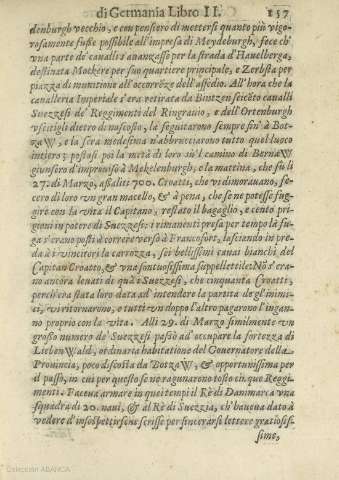 di Germania Libro II. 157
denburgh vecchio, e con pensiero di mettersi quanto più vigo-
rosamente fusse possibile all'impresa di Meydeburgh, fece ch'
vna parte de' caualli s'auanzasse per la strada d'Hauelberga,
destinata Mockère per suo quartiere principale, e Zerbsta per
piazza di munitione all'occorrēze dell'assedio. All'hora che la
caualleria Imperiale s'era retirata da Bintzen seicēto caualli
Suezzesi de' Reggimenti del Ringrauio, e dell'Ortenburgh
vscitigli dietro di nascosto, la seguitarono sempre fin' à Bot-
zaW, e la sera medesima n'abbrucciarono tutto quel luoco
intiero; postosi poi la metà di loro sù'l camino di BernaW
giunsero d'improuiso à Mekelenburgh, e la mattina, che fù li
27. di Marzo, assaliti 700. Croatti, che vi dimorauano, fe-
cero di loro vn gran macello, & à pena, che se ne potesse fug-
gire con la vita il Capitano, restato il bagaglio, e cento pri-
gioni in potere di Suezzesi: i rimanenti presa per tempo la fu-
ga s'erano posti à correre verso à Francfort, lasciando in pre-
da à i vincitori la carrozza, sei bellissimi caual bianchi del
Capitan Croatto, & vna sontuosissima suppellettile: Nō s'era-
no ancora leuati di quà i Suezzesi, che cinquanta Croatti,
perciò era stata loro data ad' intendere la partita de gl'inimi-
ci, vi ritornarono, e tutti vn doppo l'altro pagarono l'ingan-
no proprio con la vita. Alli 29. di Marzo similmente vn
grosso numero de' Suezzesi passò ad' occupare la fortezza di
LiebenWald, ordinaria habitatione del Gouernatore della
Prouincia, poco discosta da BotzaW, & opportunissima per
il passo, in cui per questo se ne ragunarono tosto cinque Reggi-
menti. Faceua armare in quei tempi il Rè di Danimarca vna
squadra di 20. naui, & al Rè di Suezzia, ch'haueua dato à
vedere d'insospettirsene scrisse per sincerarsi lettere gratiosis-
sime,
Colección ABANCA